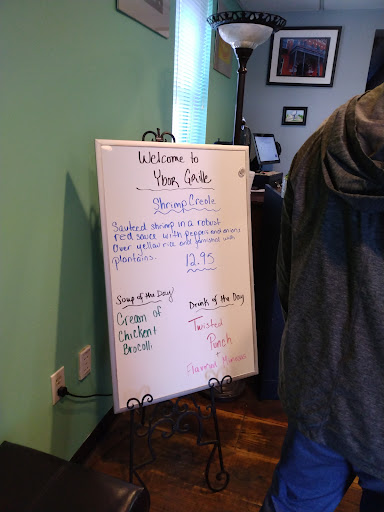 Welcome to
Ybor Grille
Shrimp Creole
Sauteed shrimp in a robust
red sauce with peppers and onions
Over yellow rice and garnished with
plantains.
12.95
Soup of the Day
Cream of
Chicken &
Brocolli
Drink of the Day
Twisted
Punch
+
Flavored Mimosas